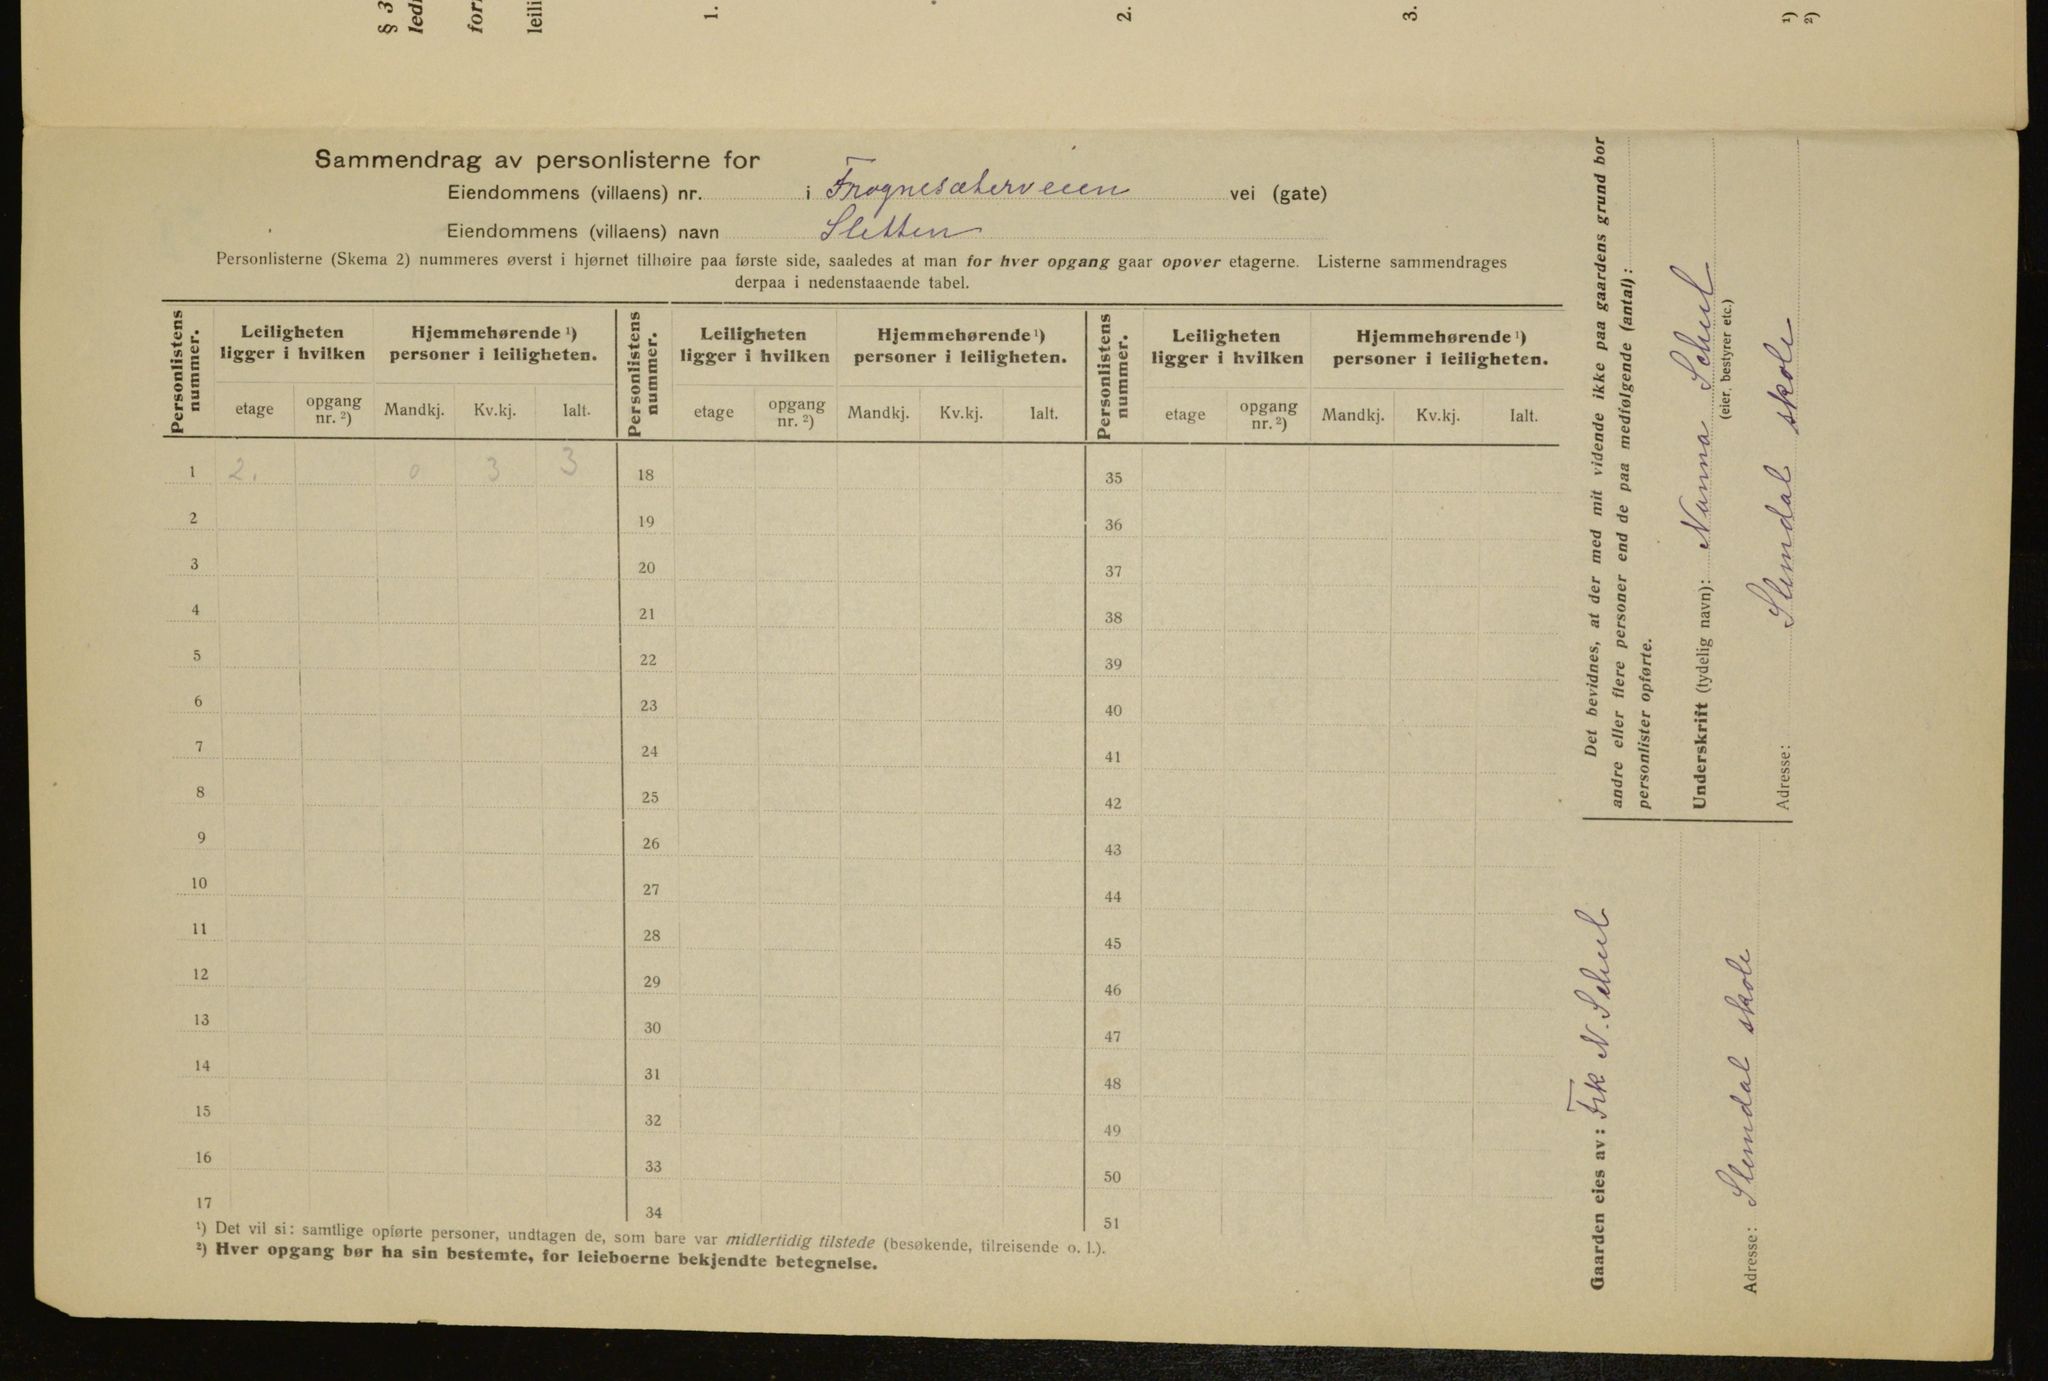 § 3
1.
2.
3.
¹)
²)
Sammendrag av personlisterne for
Eiendommens (villaens) nr. i Frognesæterveien vei (gate)
Eiendommens (villaens) navn Sletten
Personlisterne (Skema 2) nummeres øverst i hjørnet tilhøire paa første side, saaledes at man for hver opgang gaar opover etagerne. Listerne sammendrages
derpaa i nedenstaaende tabel.
Personlistens nummer. Leiligheten ligger i hvilken Hjemmehørende ¹) personer i leiligheten. Personlistens nummer. Leiligheten ligger i hvilken Hjemmehørende ¹) personer i leiligheten. Personlistens nummer. Leiligheten ligger i hvilken Hjemmehørende ¹) personer i leiligheten.
etage opgang nr. ²) Mandkj. Kv.kj. Ialt. etage opgang nr. ²) Mandkj. Kv.kj. Ialt. etage opgang nr. ²) Mandkj. Kv.kj. Ialt.
1 2. 0 3 3 18 35
2 19 36
3 20 37
4 21 38
5 22 39
6 23 40
7 24 41
8 25 42
9 26 43
10 27 44
11 28 45
12 29 46
13 30 47
14 31 48
15 32 49
16 33 50
17 34 51
¹) Det vil si: samtlige opførte personer, undtagen de, som bare var midlertidig tilstede (besøkende, tilreisende o. l.).
²) Hver opgang bør ha sin bestemte, for leieboerne bekjendte betegnelse.
Det bevidnes, at der med mit vidende ikke paa gaardens grund bor
andre eller flere personer end de paa medfølgende (antal):
personlister opførte.
Underskrift (tydelig navn): Nanna Scheel
(eier, bestyrer etc.)
Adresse: Slemdal skole
Gaarden eies av: Frk N. Scheel
Adresse: Slemdal skole